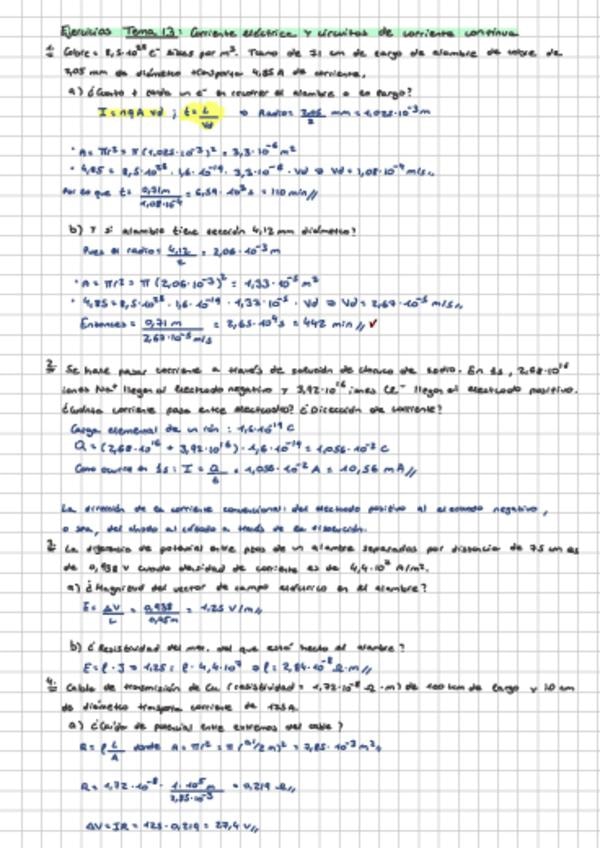 Ejercicios Tema 13: Corriente eléctrica y circuitos de corriente continua
1. Cobre = 8,5·10²⁸ e⁻ libres por m³. Tramo de 71 cm de largo de alambre de cobre de
2,05 mm de diámetro transporta 4,85 A de corriente.
a) ¿Cuánto t tarda un e⁻ en recorrer el alambre a lo largo?
I = nqA vd ; t = L/Vd → Radio = 2,05/2 mm = 1,025·10⁻³ m
· A = πr² = π (1,025·10⁻³)² = 3,3·10⁻⁶ m²
· 4,85 = 8,5·10²⁸ · 1,6·10⁻¹⁹ · 3,3·10⁻⁶ · Vd ⇒ Vd = 1,08·10⁻⁴ m/s
Por lo que t = 0,71 m / 1,08·10⁻⁴ = 6,59·10³ s = 110 min //
b) Y si alambre tiene sección 4,12 mm diámetro?
Pues el radio = 4,12/2 = 2,06·10⁻³ m
· A = πr² = π (2,06·10⁻³)² = 1,33·10⁻⁵ m²
· 4,85 = 8,5·10²⁸ · 1,6·10⁻¹⁹ · 1,33·10⁻⁵ · Vd ⇒ Vd = 2,67·10⁻⁵ m/s //
Entonces = 0,71 m / 2,67·10⁻⁵ m/s = 2,65·10⁴ s = 442 min // ✓
2. Se hace pasar corriente a través de solución de cloruro de sodio. En 1s, 2,68·10¹⁶
iones Na⁺ llegan al electrodo negativo y 3,92·10¹⁶ iones Cl⁻ llegan al electrodo positivo.
¿Cuánta corriente pasa entre electrodos? ¿Dirección de corriente?
Carga elemental de un ión: 1,6·10⁻¹⁹ C
Q = (2,68·10¹⁶ + 3,92·10¹⁶) · 1,6·10⁻¹⁹ = 1,056·10⁻² C
Como ocurre en 1s: I = Q/t = 1,056·10⁻² A = 10,56 mA //
La dirección de la corriente convencional: del electrodo positivo al electrodo negativo,
o sea, del ánodo al cátodo a través de la disolución.
3. La diferencia de potencial entre ptos de un alambre separados por distancia de 75 cm es
de 0,938 V cuando densidad de corriente es de 4,4·10⁷ A/m².
a) ¿Magnitud del vector de campo eléctrico en el alambre?
E = ΔV/L = 0,938/0,75m = 1,25 V/m //
b) ¿Resistividad del mat. del que está hecho el alambre?
E = ρ · J ⇒ 1,25 = ρ · 4,4·10⁷ ⇒ ρ = 2,84·10⁻⁸ Ω·m //
4. Cable de transmisión de Cu (resistividad = 1,72·10⁻⁸ Ω·m) de 100 km de largo y 10 cm
de diámetro transporta corriente de 125 A.
a) ¿Caída de potencial entre extremos del cable?
R = ρ L/A donde A = πr² = π (0,1/2 m)² = 7,85·10⁻³ m² //
R = 1,72·10⁻⁸ · 1·10⁵ m / 7,85·10⁻³ = 0,219 Ω //
ΔV = IR = 125 · 0,219 = 27,4 V //